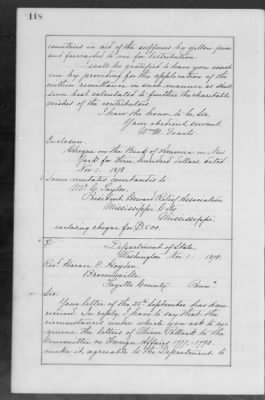 118
countries in aid of the sufferers by yellow fever
and forwarded to me for distribution.
I shall be gratified to have you assist
me by providing for the application of the
within remittance in such manner as shall
seem best calculated to further the charitable
wishes of the contributors.
I have the honor to be, Sir,
Your obedient servant
Wm. M. Evarts
Enclosure
Cheque on the Bank of America in New
York for three hundred dollars dated
Nov. 1. 1878.
Same mutatis mutandis to
Mr. C. Taylor,
President Howard Relief Association
Mississippi City
Mississippi,
enclosing cheque for $500.
Department of State
Washington Nov. 1. 1878.
Revd. Horace E. Hayden
Brownsville
Fayette County Penna.
Sir:
Your letter of the 30th September has been
received. In reply, I have to say that the
circumstances under which you ask to ex-
amine the letters of Oliver Pollock to the
Committee on Foreign Affairs 1777-1792.
make it agreeable to the Department to